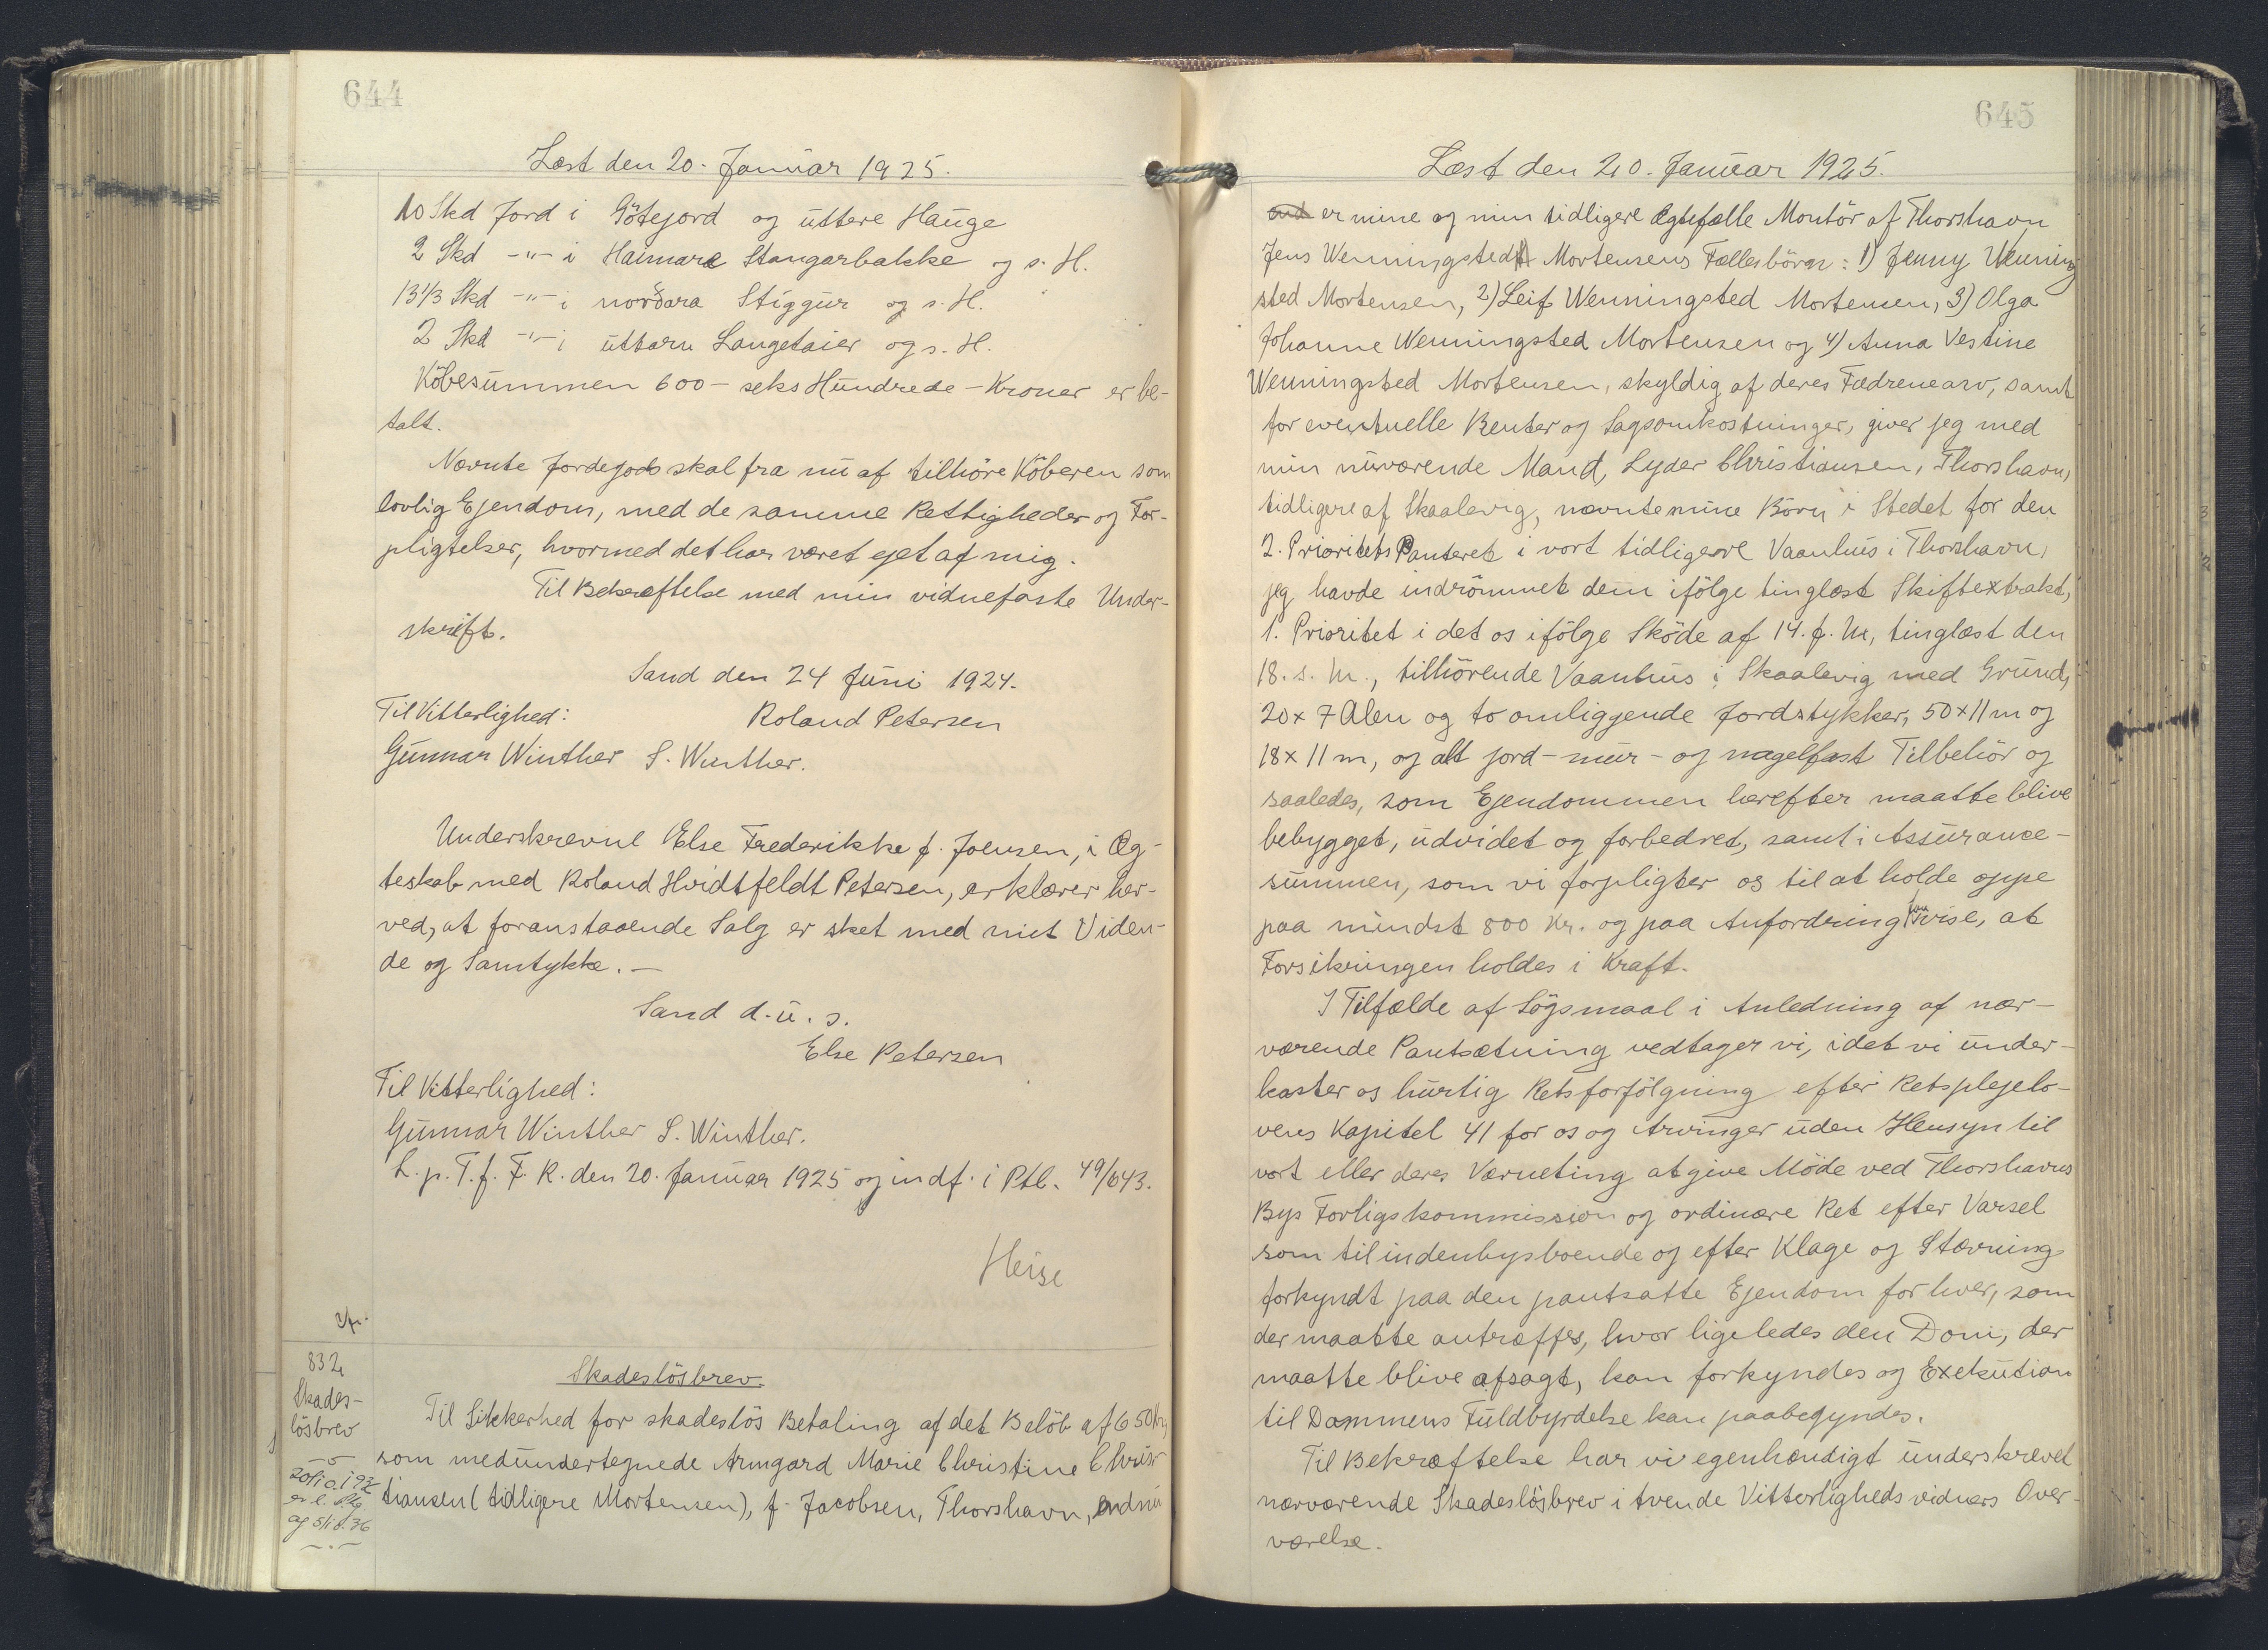 644
Læst den 20. Januar 1925.
10 Skd Jord i Götejord og uttere Hauge
2 Skd -"- i Haimara Stangarbakke og s. H.
13 1/3 Skd -"- i norðara Stiggur og s. H.
2 Skd -"- i uttaru Langetaier og s. H.
Köbesummen 600 - seks Hundrede - Kroner er be-
talt.
Nævnte Jordegods skal fra nu af tilhöre Köberen som
lovlig Ejendom, med de samme Rettigheder og For-
pligtelser, hvormed det har været ejet af mig.
Til Bekræftelse med min vidnefaste Under-
skrift.
Sand den 24 Juni 1924.
Til Vitterlighed: Roland Petersen
Gunnar Winther S. Winther.
Underskrevne Else Frederikke f. Joensen, i Æg-
teskab med Roland Hvidtfeldt Petersen, erklærer her-
ved, at foranstaaende Salg er sket med mit Viden-
de og Samtykke. —
Sand d. u. s.
Else Petersen
Til Vitterlighed:
Gunnar Winther S. Winther.
L. p. T. f. F. R. den 20. Januar 1925 og indf. i Ptl. 49/643.
Heise
832
Skades-
lösbrev
Skadeslösbrev.
Til Sikkerhed for skadeslös Betaling af det Belöb af 650 Kr,
som medundertegnede Armgard Marie Christine Chris-
tiansen (tidligere Mortensen), f. Jacobsen, Thorshavn, endnu
645
Læst den 20. Januar 1925.
er mine og min tidligere Ægtefælle Montör af Thorshavn
Jens Wenningsted Mortensens Fællesbörn: 1) Jenny Wenning
sted Mortensen, 2) Leif Wenningsted Mortensen, 3) Olga
Johanne Wenningsted Mortensen og 4) Anna Vestine
Wenningsted Mortensen, skyldig af deres Fædrenearv, samt
for eventuelle Renter og Sagsomkostninger, giver jeg med
min nuværende Mand, Lyder Christiansen, Thorshavn,
tidligere af Skaalevig, nævnte mine Börn i Stedet for den
2. Prioritets Panteret i vort tidligere Vaanhus i Thorshavn,
jeg havde indrömmet dem ifölge tinglæst Skifteextrakt,
1. Prioritet i det os ifölge Sköde af 14. f. M, tinglæst den
18. s. M., tilhörende Vaanhus i Skaalevig med Grund,
20 x 7 Alen og to omliggende Jordstykker, 50 x 11 m og
18 x 11 m, og alt jord- mur- og nagelfast Tilbehör og
saaledes, som Ejendommen herefter maatte blive
bebygget, udvidet og forbedret, samt i Assurance-
summen, som vi forpligter os til at holde oppe
paa mindst 800 Kr. og paa Anfordring at vise, at
Forsikringen holdes i Kraft.
I Tilfælde af Sögsmaal i Anledning af nær-
værende Pantsætning vedtager vi, idet vi under-
kaster os hurtig Retsforfölgning efter Retsplejelo-
vens Kapitel 41 for os og Arvinger uden Hensyn til
vort eller deres Værneting at give Möde ved Thorshavns
Bys Forligskommission og ordinære Ret efter Varsel
som til indenbysboende og efter Klage og Stævning
forkyndt paa den pantsatte Ejendom for hver, som
der maatte antræffes, hvor ligeledes den Dom, der
maatte blive afsagt, kan forkyndes og Exekution
til Dommens Fuldbyrdelse kan paabegyndes.
Til Bekræftelse har vi egenhændigt underskrevet
nærværende Skadeslösbrev i tvende Vitterlighedsvidners Over-
værelse.